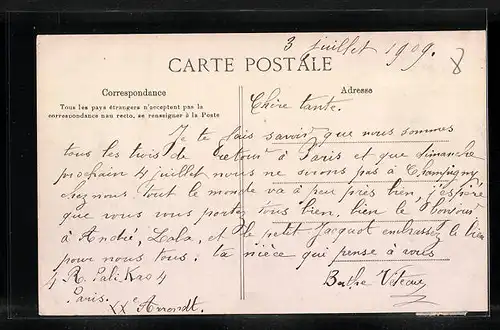 3 juillet 1909.
8
CARTE POSTALE
Correspondance
Adresse
Tous les pays étrangers n'acceptent pas la
correspondance nau recto, se renseigner à la Poste
Chère tante.
Je te fais savoir que nous sommes
tous les trois de retour à Paris et que dimanche
prochain 4 juillet nous ne serons pas à Champigny
chez nous tout le monde va à peu près bien, j'espère
que vous vous portez tous bien, bien le bonjour
à André, Lola, et le petit Jacquot embrassez le bien
pour nous tous. ta nièce qui pense à vous
4 R. Pali-Kao 4
Berthe
Paris.
XXe Arrondt.